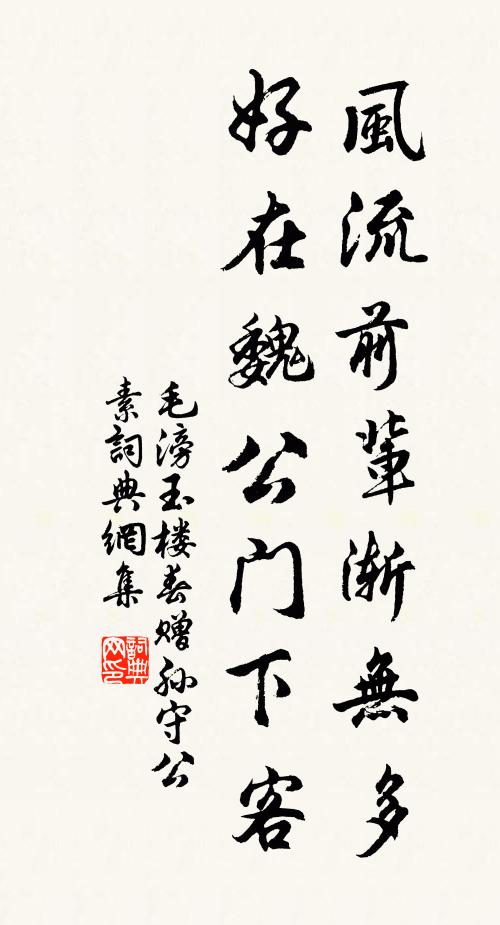 風流前輩漸無多
好在魏公门下客
毛滂玉楼春赠孙守公
素詞典網集
詞典網印